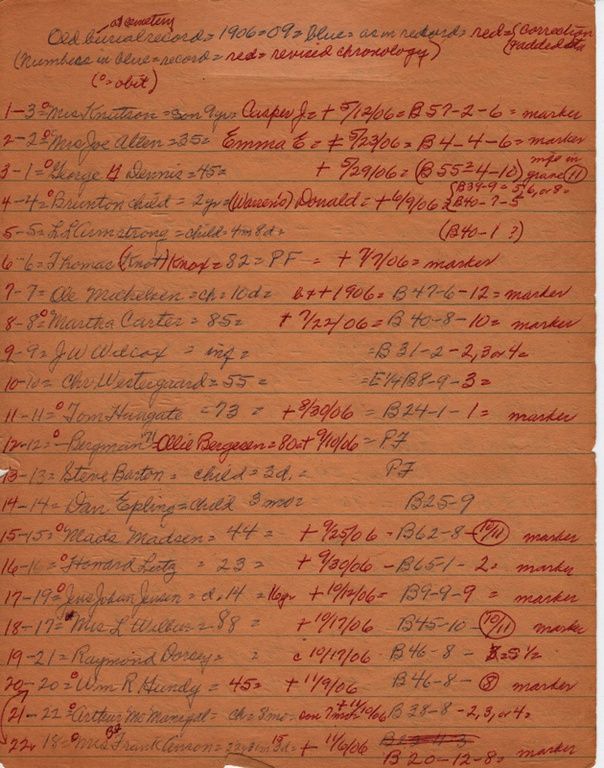 at cemetery
Old burial record = 1906-09 = blue = as in record = red = (correction
(Numbers in blue = record = red = revised chronology) + added data
(° = obit)
1-3 = ° Mrs Knutson = son 9 yr = Casper J = + 5/12/06 = B57-2-6 = marker
2-2 = ° Mrs Joe Allen = 35 = Emma E = + 5/23/06 = B4-4-6 = marker
3-1 = ° George Dennis = 45 = + 5/29/06 = (B55 4-10) in grave (11)
4-4 = ° Brinton child = 2 yr = (Warren's) Donald = + 6/9/06 = {B39-9 = 5, 6, or 8 = B40-7-5
5-5 = Armstrong = child = 4m 8d = (B40-1 ?)
6-6 = Thomas (Knot) Knox = 82 = PF = + 7/7/06 = marker
7-7 = Ole Mickelsen = ch = 10 d = b + + 1906 = B47-6-12 = marker
8-8 = ° Martha Carter = 85 = + 7/22/06 = B40-8-10 = marker
9-9 = J W Wilcox = inf = = B31-2-2, 3 or 4 =
10-10 = Chr. Westergaard = 55 = = E1/4 B8-9-3 =
11-11 = ° Tom Hungate = 73 = + 8/30/06 = B24-1-1 = marker
12-12 = ° Bergman Ollie Bergesen = 80 = + 9/10/06 = PF
13-13 = Steve Barton = child = 3d. = PF
14-14 = Dan Epling = child 3 mo = B25-9
15-15 = ° Mads Madsen = 44 = + 9/25/06 - B62-8-(10/11) marker
16-16 = ° Howard Lertz = 23 = + 9/30/06 - B65-1-2 = marker
17-19 = ° Jens Johan Jensen = d. 14 = 16 yr + 10/12/06 = B9-9-9 = marker
18-17 = ° Mrs L Wilbur = 88 = + 10/17/06 B45-10-(10/11) marker
19-21 = Raymond Dorsey = = c 10/17/06 B46-8- = 5 1/2
20-20 = ° Wm R Hundy = 45 = + 11/9/06 B46-8-(8) marker
21-22 = ° Arthur McManegal = ch = 8 mo = son 7 mo = + 11/10/06 B38-8-2, 3, or 4 =
22-18 = ° Mrs Frank Anson = + 11/6/06 B20-12-8 = marker